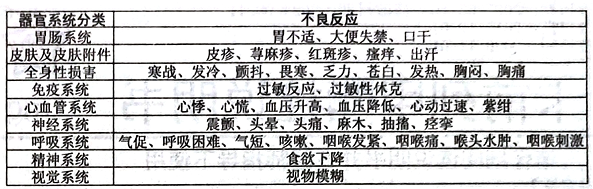 器官系统分类 不良反应
胃肠系统 胃不适、大便失禁、口干
皮肤及皮肤附件 皮疹、荨麻疹、红斑疹、瘙痒、出汗
全身性损害 寒战、发冷、颤抖、畏寒、乏力、苍白、发热、胸闷、胸痛
免疫系统 过敏反应、过敏性休克
心血管系统 心悸、心慌、血压升高、血压降低、心动过速、紫绀
神经系统 震颤、头晕、头痛、麻木、抽搐、痉挛
呼吸系统 气促、呼吸困难、气短、咳嗽、咽喉发紧、咽喉痛、喉头水肿、咽喉刺激
精神系统 食欲下降
视觉系统 视物模糊